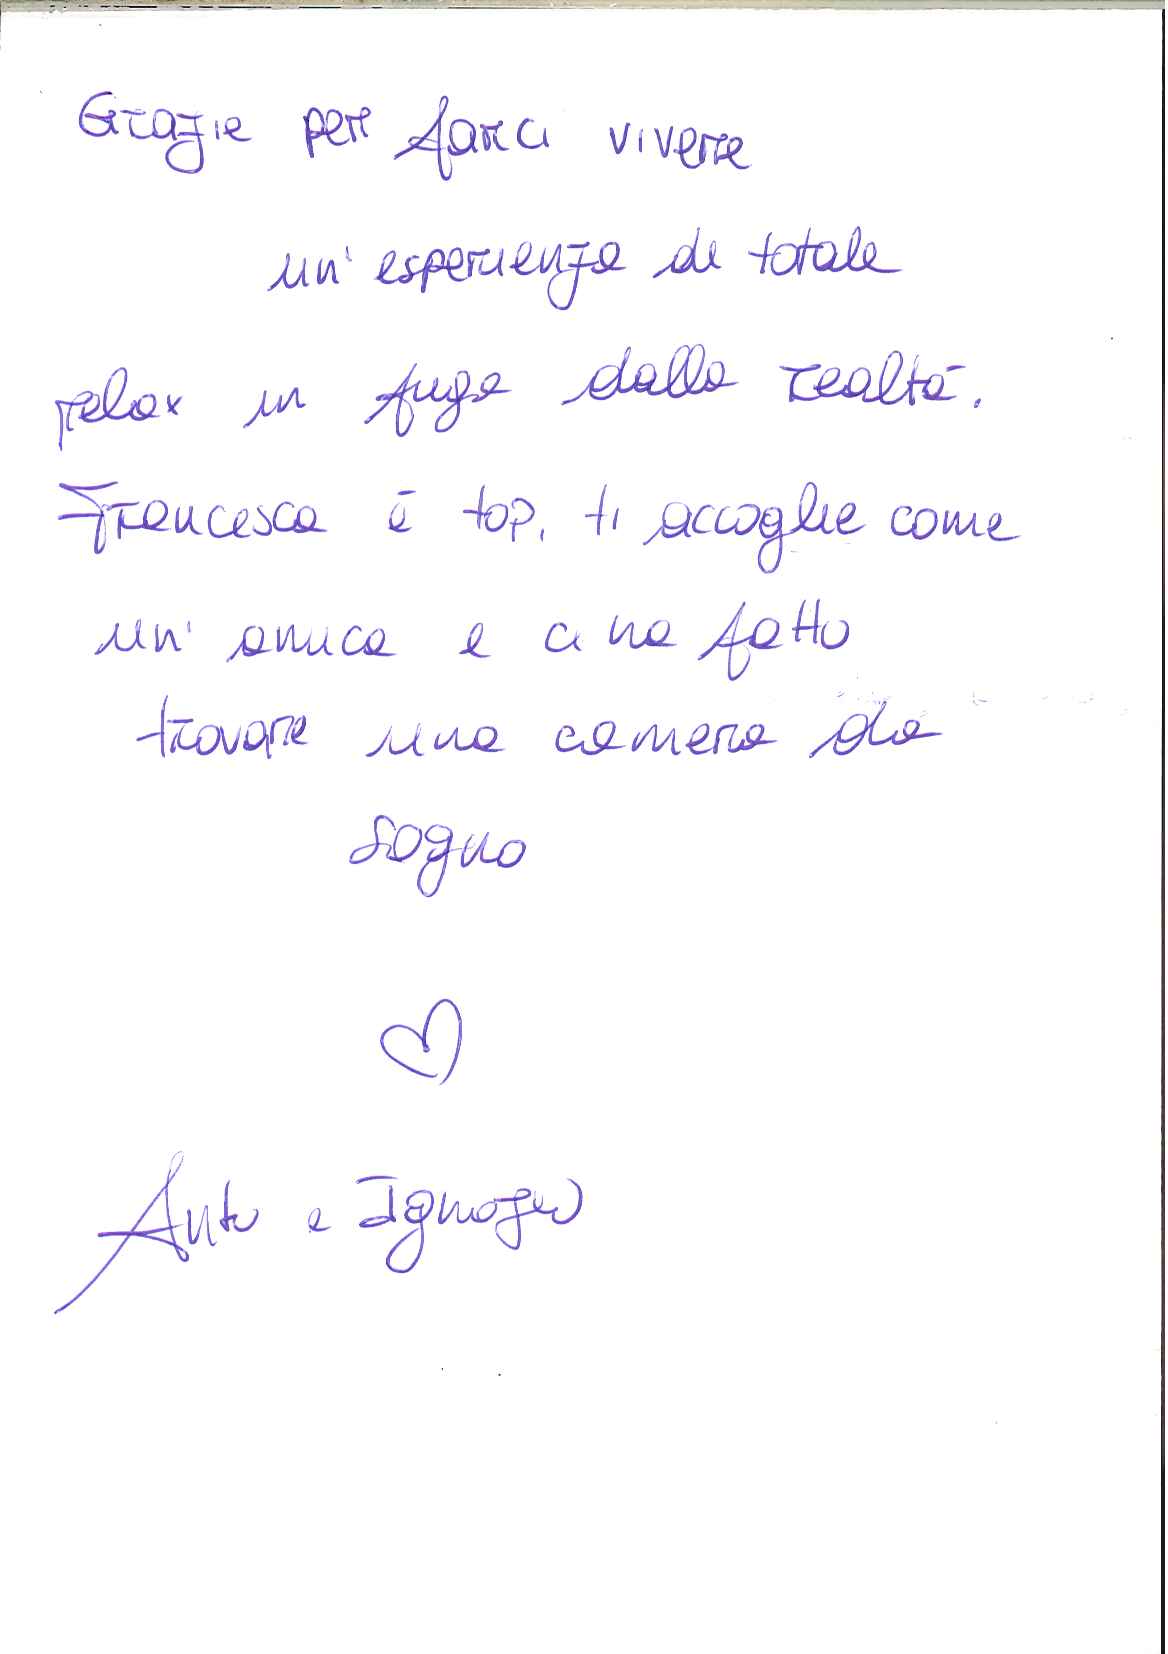 Grazie per farci vivere
un'esperienza di totale
relax in fuga dalla realtà.
Francesca è top, ti accoglie come
un'amica e ci ha fatto
trovare una camera da
sogno
Anto e Ignazio